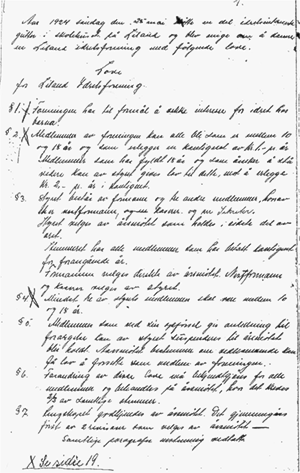 1.
Aar 1924 søndag den 25 mai
gutter i skolehuset på Leland og blev enige om å danne
en Leland idrettsforening med følgende love.
Love
for Leland Idrettsforening.
§1. Foreningen har til formål å vekke interesse for idret hos
§2. X Medlemmer av foreningen kan alle bli som er mellem 10
og 18 år og som erlegger en kontigent av kr. 1.- pr. år
Medlemmer som har fyldt 18 år og som ønsker å stå
videre kan av styret gives lov til dette, med å erlegge
kr. 2.- pr. år i kontigent.
§3. Styret består av formann og tre andre medlemmer, hvorav
en sekretær.
Styret velges av årsmøtet som holdes i siste del av
året.
Stemmeret har alle medlemmer som har betalt kontigent
for foregående år.
Formannen velges direkte av årsmøtet. Næstformann
og kasserer velges av styret.
§4. X Mindst to av styrets medlemmer skal være mellem 10
og 18 år.
§5. Medlemmer som ved sin opførsel gir anledning til
forargelse kan av styret suspenderes til årsmøtet
blir holdt. Årsmøtet bestemmer om vedkommende
skal få lov å fortsette som medlem av foreningen.
§6. Forandring av disse love må bekjendtgjøres for alle
medlemmer og behandles på årsmøtet, hvor det kreves
2/3 av samtlige stemmer.
§7. Regnskapet godkjendes av årsmøtet. Det gjennemgåes
først av 2 revisorer som velges av årsmøtet
Samtlige paragrafer enstemmig vedtatt
X Se side 19.